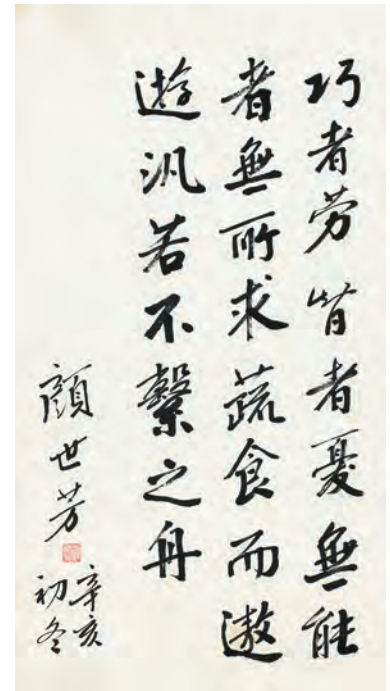 巧者劳智者憂無能
者無所求蔬食而遨
遊汎若不繫之舟
顏世芳
辛亥
初冬